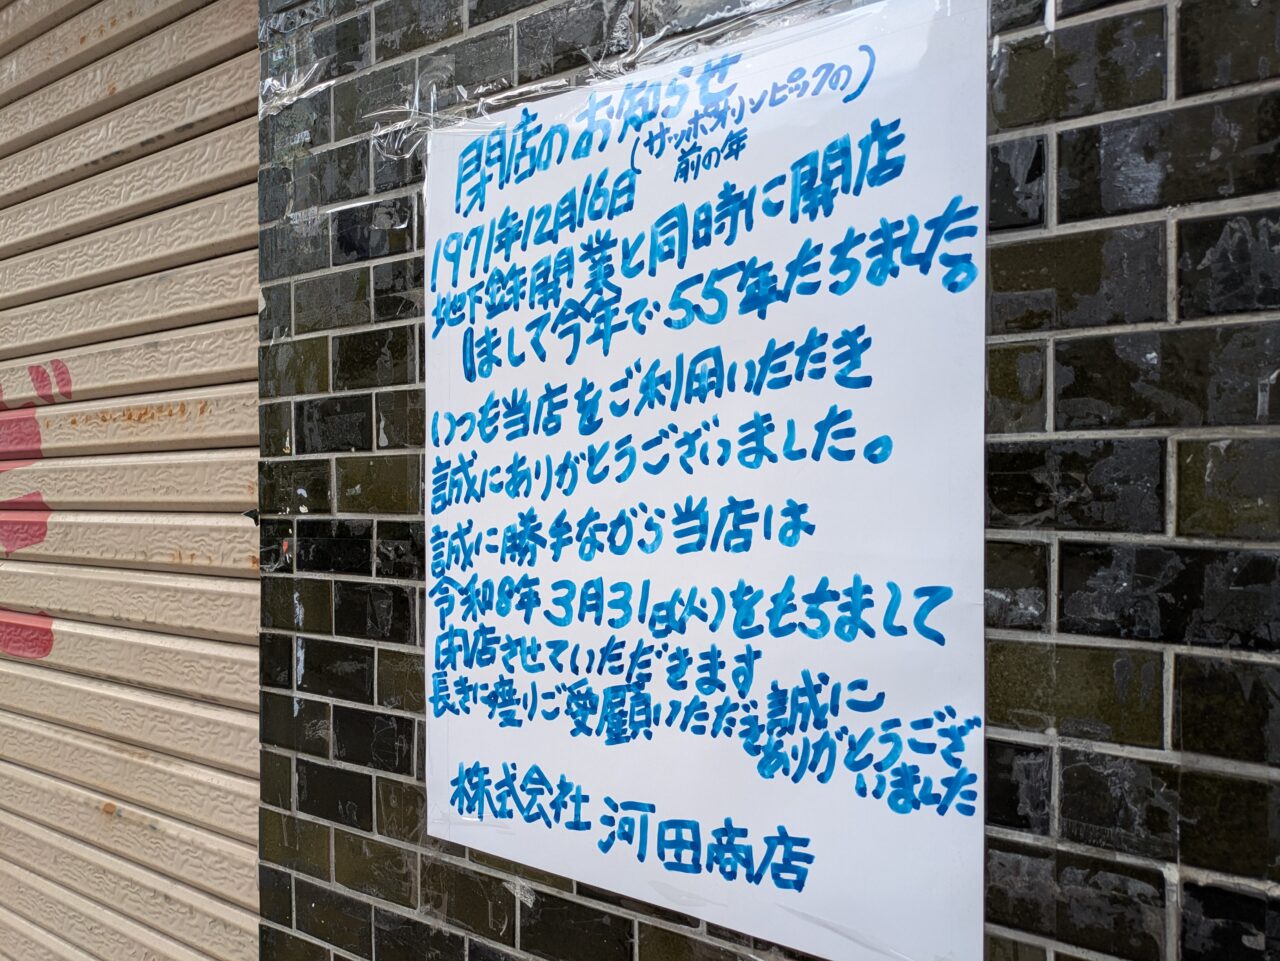 閉店のお知らせ
1971年12月16日(サッポロオリンピックの)
前の年
地下鉄開業と同時に開店
しまして今年で55年たちました。
いつも当店をご利用いただき
誠にありがとうございました。
誠に勝手ながら当店は
令和8年3月31日(火)をもちまして
閉店させていただきます
長きに渡りご愛顧いただき誠に
ありがとうござ
いました
株式会社 河田商店